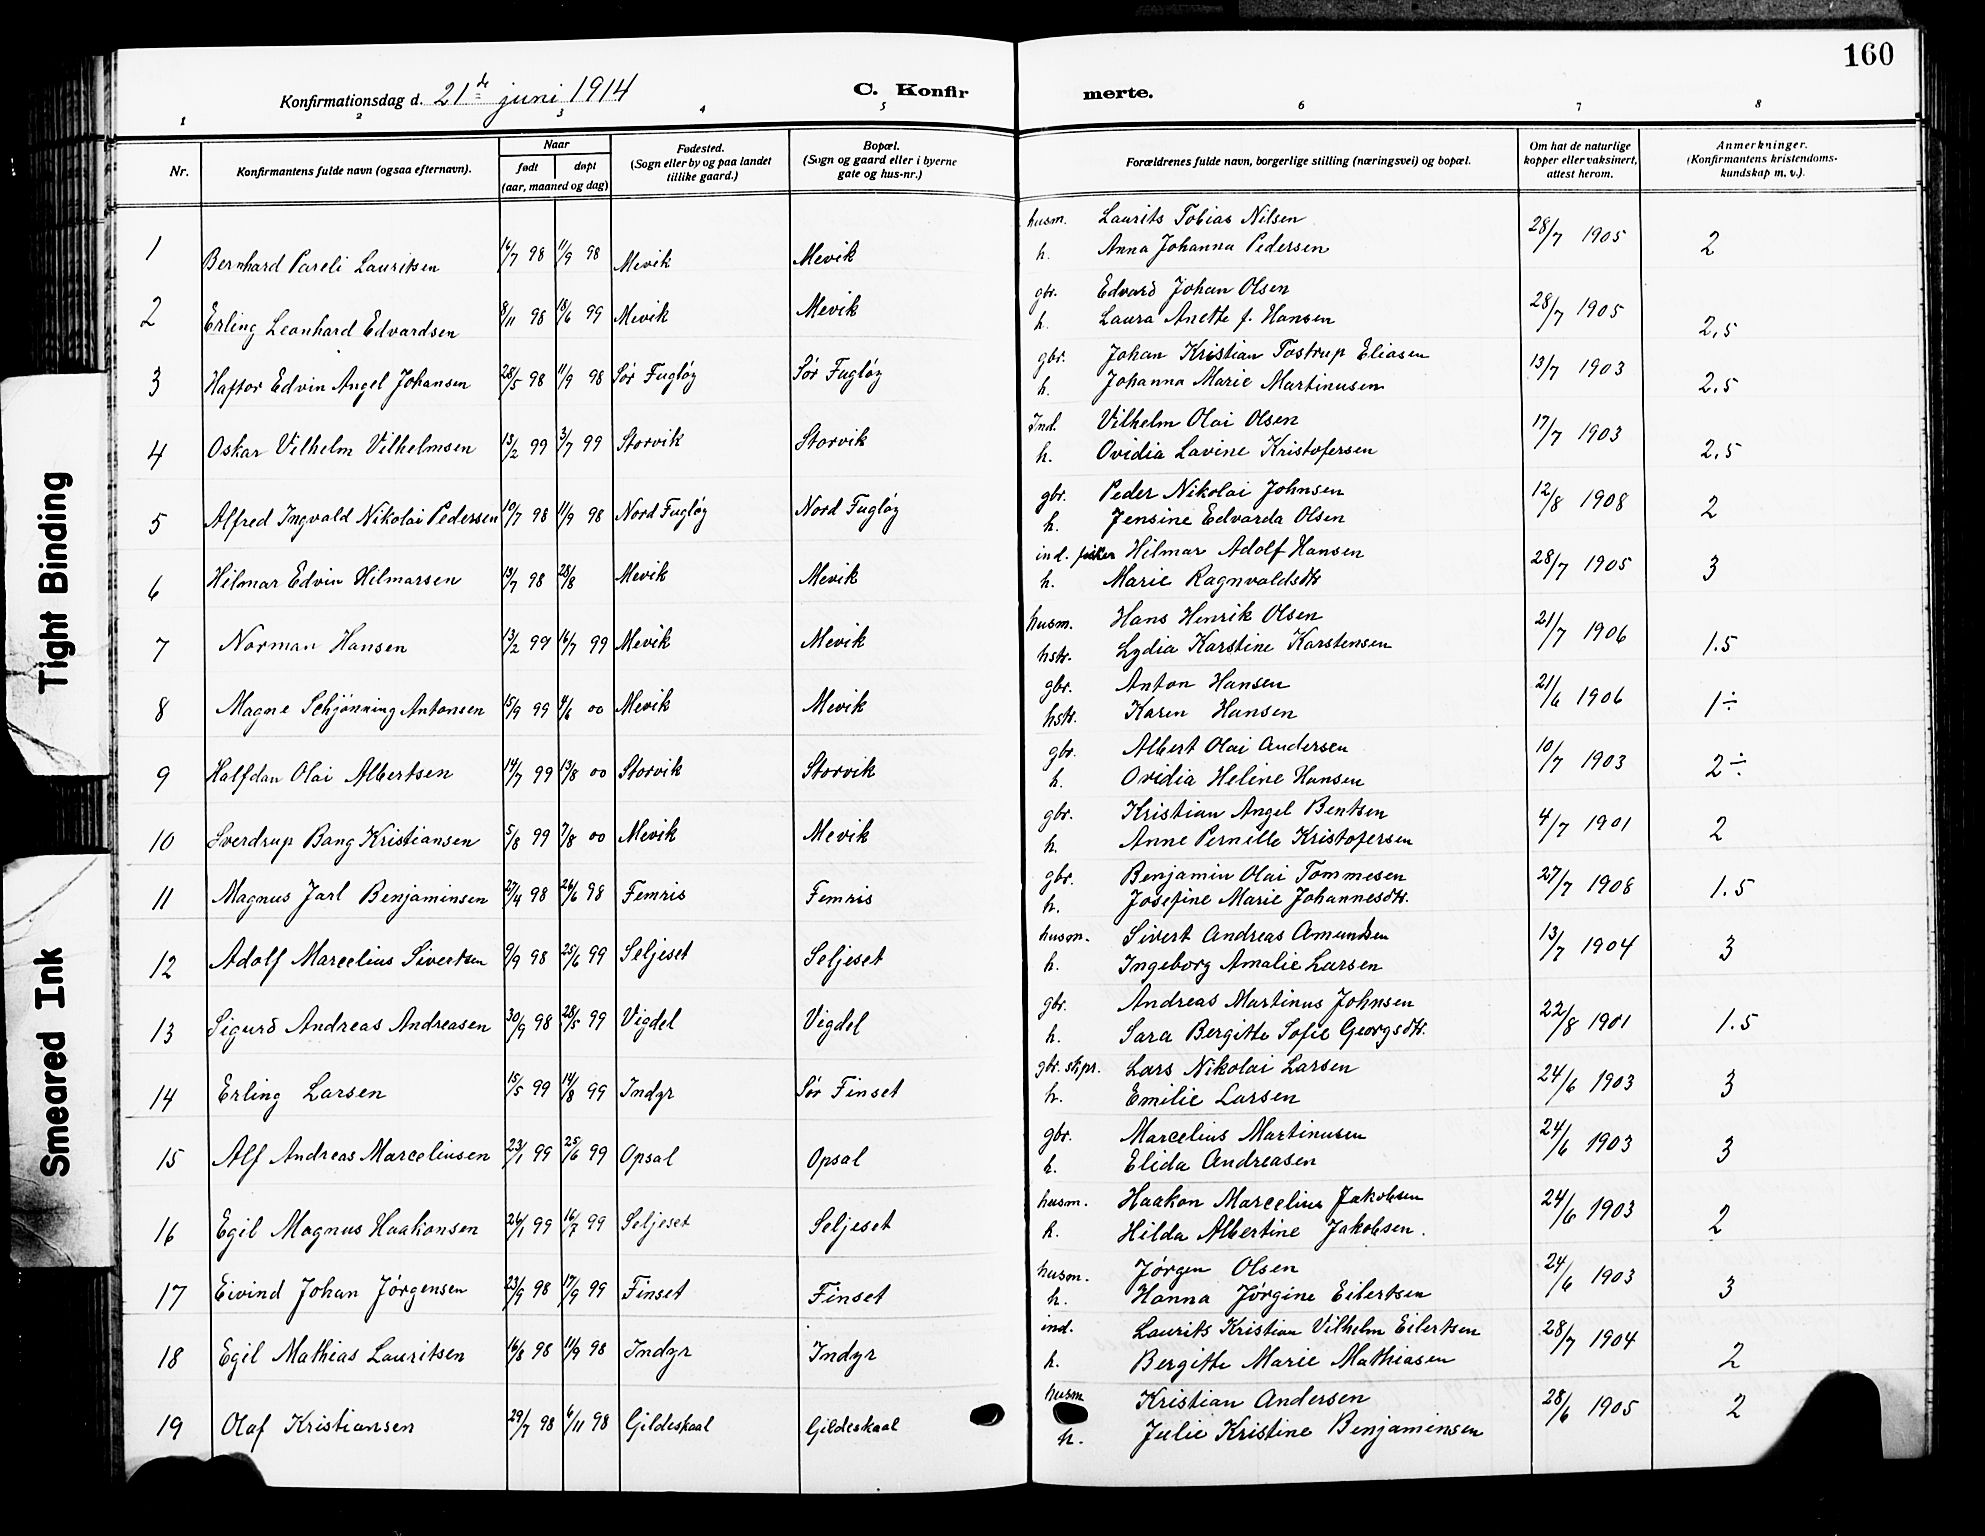 160
Konfirmationsdag d. 21de juni 1914 C. Konfirmerte.
1 2 3 4 5 6 7 8
Nr. Konfirmantens fulde navn (ogsaa efternavn). Naar født døpt (aar, maaned og dag) Fødested. (Sogn eller by og paa landet tillike gaard.) Bopæl. (Sogn og gaard eller i byerne gate og hus-nr.) Forældrenes fulde navn, borgerlige stilling (næringsvei) og bopæl. Om hat de naturlige kopper eller vaksinert, attest herom. Anmerkninger. (Konfirmantens kristendomskundskap m. v.).
husm. Laurits Tobias Nilsen
1 Bernhard Pareli Lauritsen 16/7 98 11/9 98 Mevik Mevik h. Anna Johanna Pedersen 28/7 1905 2
gbr. Edvard Johan Olsen
2 Erling Leonhard Edvardsen 8/11 98 18/6 99 Mevik Mevik h. Laura Anette f. Hansen 28/7 1905 2,5
gbr. Johan Kristian Tostrup Eliasen
3 Haftor Edvin Angel Johansen 28/5 98 11/9 98 Sør Fugløy Sør Fugløy h. Johanna Marie Martinusen 13/7 1903 2.5
Ind. Vilhelm Olai Olsen
4 Oskar Vilhelm Vilhelmsen 13/2 99 3/7 99 Storvik Storvik h. Ovidia Lavine Kristofersen 17/7 1903 2,5
gbr. Peder Nikolai Johnsen
5 Alfred Ingvald Nikolai Pedersen 10/7 98 11/9 98 Nord Fugløy Nord Fugløy h. Jensine Edvarda Olsen 12/8 1908 2
ind. fisker Hilmar Adolf Hansen
6 Hilmar Edvin Hilmarsen 13/7 98 28/8 Mevik Mevik h. Marie Ragnvaldsdtr 28/7 1905 3
husm. Hans Henrik Olsen
7 Norman Hansen 13/2 99 16/7 99 Mevik Mevik hstr. Lydia Karstine Karstensen 21/7 1906 1.5
gbr. Anton Hansen
8 Magne Schjønning Antonsen 15/9 99 4/6 00 Mevik Mevik hstr. Karen Hansen 21/6 1906 1÷
gbr. Albert Olai Andersen
9 Halfdan Olai Albertsen 14/7 99 13/8 00 Storvik Storvik h. Ovidia Heline Hansen 10/7 1903 2÷
gbr. Kristian Angel Bentsen
10 Sverdrup Bang Kristiansen 5/8 99 7/8 00 Mevik Mevik h. Anne Pernille Kristofersen 4/7 1901 2
gbr. Benjamin Olai Tommesen
11 Magnus Jarl Benjaminsen 27/4 98 26/6 98 Femris Femris h. Josefine Marie Johannesdtr. 27/7 1908 1.5
husm. Sivert Andreas Amundsen
12 Adolf Marcelius Sivertsen 9/9 98 25/6 99 Seljeset Seljeset h. Ingeborg Amalie Larsen 13/7 1904 3
gbr. Andreas Martinus Johnsen
13 Sigurd Andreas Andreasen 30/9 98 28/5 99 Vigdel Vigdel h. Sara Bergitte Sofie Georgsdtr. 22/8 1901 1.5
gbr. skpr. Lars Nikolai Larsen
14 Erling Larsen 15/5 99 14/8 99 Indyr Sør Finset h. Emilie Larsen 24/6 1903 3
gbr. Marcelius Martinusen
15 Alf Andreas Marceliusen 23/1 99 25/6 99 Opsal Opsal h. Elida Andreasen 24/6 1903 3
husm. Haakon Marcelius Jakobsen
16 Egil Magnus Haakonsen 26/1 99 16/7 99 Seljeset Seljeset h. Hilda Albertine Jakobsen. 24/6 1903 2
husm. Jørgen Olsen
17 Eivind Johan Jørgensen 23/9 98 17/9 99 Finset Finset h. Hanna Jørgine Eilertsen 24/6 1903 3
ind. Laurits Kristian Vilhelm Eilertsen
18 Egil Mathias Lauritsen 16/8 98 11/9 98 Indyr Indyr h. Bergitte Marie Mathiasen 28/7 1904 2
husm Kristian Andersen
19 Olaf Kristiansen 29/7 98 6/11 98 Gildeskaal Gildeskaal h. Julie Kristine Benjaminsen 28/6 1905 2
Tight Binding
Smeared Ink